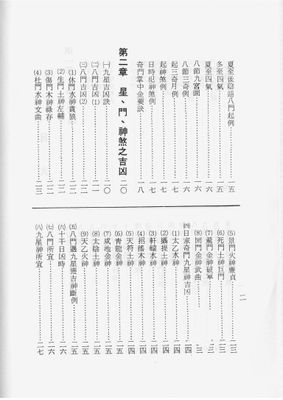 夏至後陰遁八門起例……一五
冬至四氣……一五
夏至四氣……一五
八節九宮圖……一六
八節三奇例……一六
起三奇月例……一七
起神煞例……一七
日時起神煞例……一七
奇門掌中金要訣……一八
第二章 星、門、神煞之吉凶……二〇
㈠九星吉凶訣……二〇
㈡八門吉凶⑴……二一
㈢八門吉凶⑵……二一
⑴休門水神貪狼……二一
⑵生門土神左輔……二二
⑶傷門木神祿存……二二
⑷杜門木神文曲……二三
⑸景門火神廉貞……二三
⑹死門土神巨門……二三
⑺驚門金神破軍……二三
⑻開門金神武曲……二三
㈣日家奇門九星神吉凶……二四
⑴太乙水神……二四
⑵攝提土神……二四
⑶軒轅木神……二四
⑷招搖木神……二四
⑸天符土神……二五
⑹青龍金神……二五
⑺咸池金神……二五
⑻太陰土神……二五
⑼天乙火神……二五
㈤八門遇九星達吉神斷例……二五
㈥十干日凶時……二六
㈦八門所宜……二六
㈧九星神所宜……二七
二